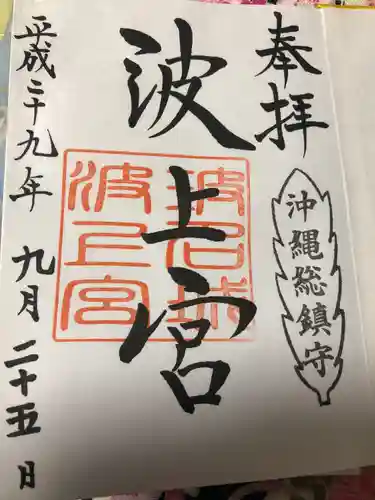 奉拝
沖縄総鎮守
波上宮
那覇波上宮
平成二十九年 九月 二十五日